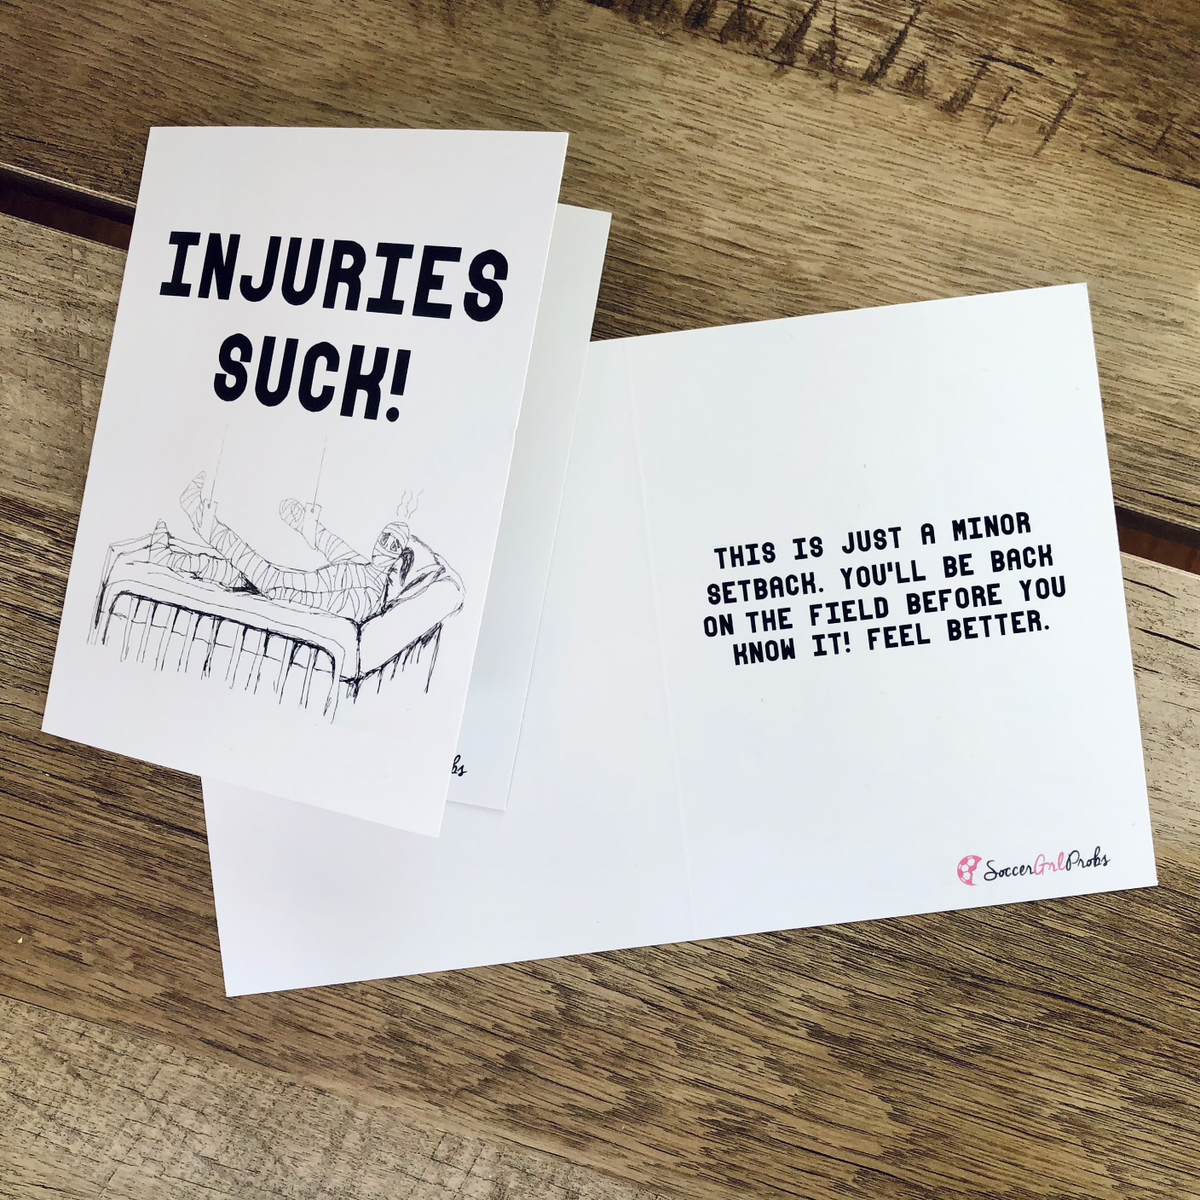 INJURIES
SUCK!
THIS IS JUST A MINOR
SETBACK. YOU'LL BE BACK
ON THE FIELD BEFORE YOU
KNOW IT! FEEL BETTER.
SoccerGrlProbs
bs